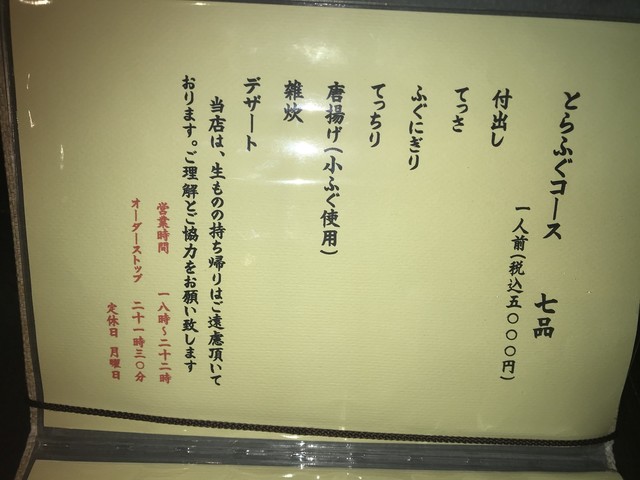 とらふぐコース 七品
一人前(税込五〇〇〇円)
付出し
てっさ
ふぐにぎり
てっちり
唐揚げ(小ふぐ使用)
雑炊
デザート
当店は、生ものの持ち帰りはご遠慮頂いて
おります。ご理解とご協力をお願い致します
営業時間 一八時~二十二時
オーダーストップ 二十一時三〇分
定休日 月曜日